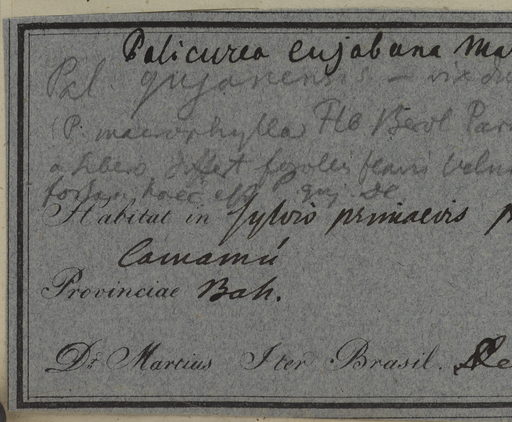 Palicurea cujabana Mar
Pal. gujanensis – vix di
(P. macrophylla Hb Berol Par
a libero differt foliis
forsan haec est P. guj. DC
Habitat in sylvis primaevis p
Camamú
Provinciae Bah.
Dr. Martius Iter Brasil. De